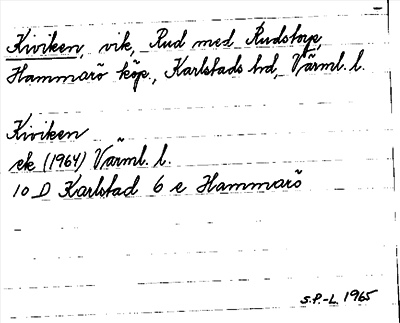 Kiviken, vik, Rud med Rudstorp,
Hammarö köp., Karlstads hd, Värml. l.
Kiviken
ek (1964) Värml. l.
10 D Karlstad 6 e Hammarö
S.P.-L. 1965